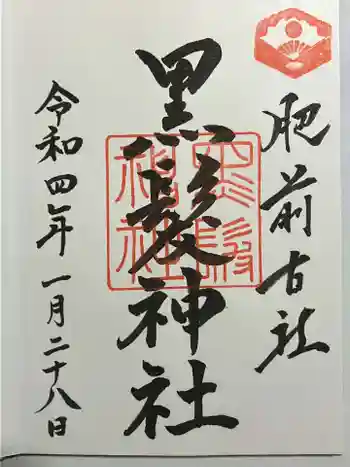 肥前古社
黒髪神社
令和四年一月二十八日
黒髪神社